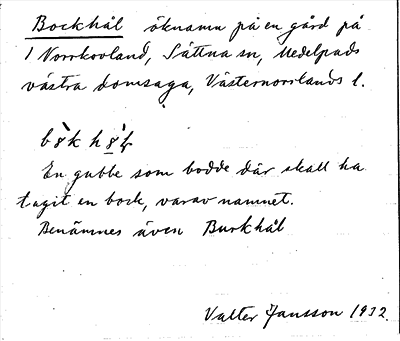 Bockhål öknamn på en gård på
1 Norrkovland, Sättna sn, Medelpads
västra domsaga, Västernorrlands l.
En gubbe som bodde där skall ha
tagit en bock, varav namnet.
Benämnes även Burkhål
Valter Jansson 1932.